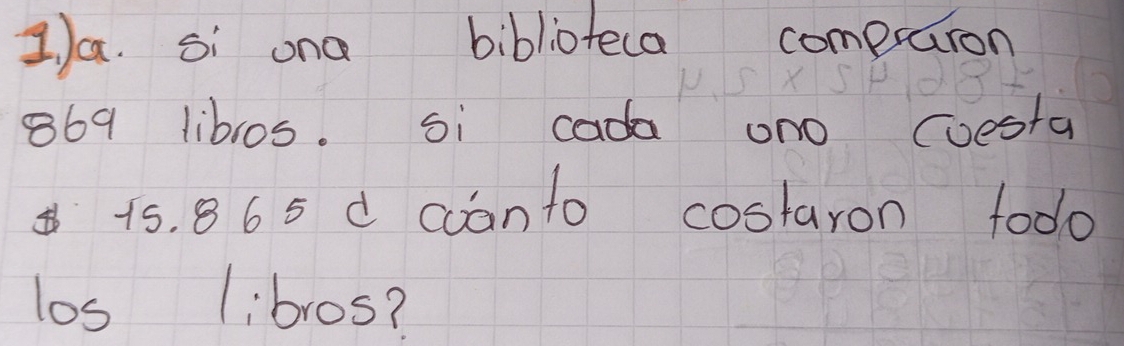 1.)a. si una biblioteca compraron
869 libros. si cada uno cuesta
$ 15.865 d cuánto costaron todo
los libros?